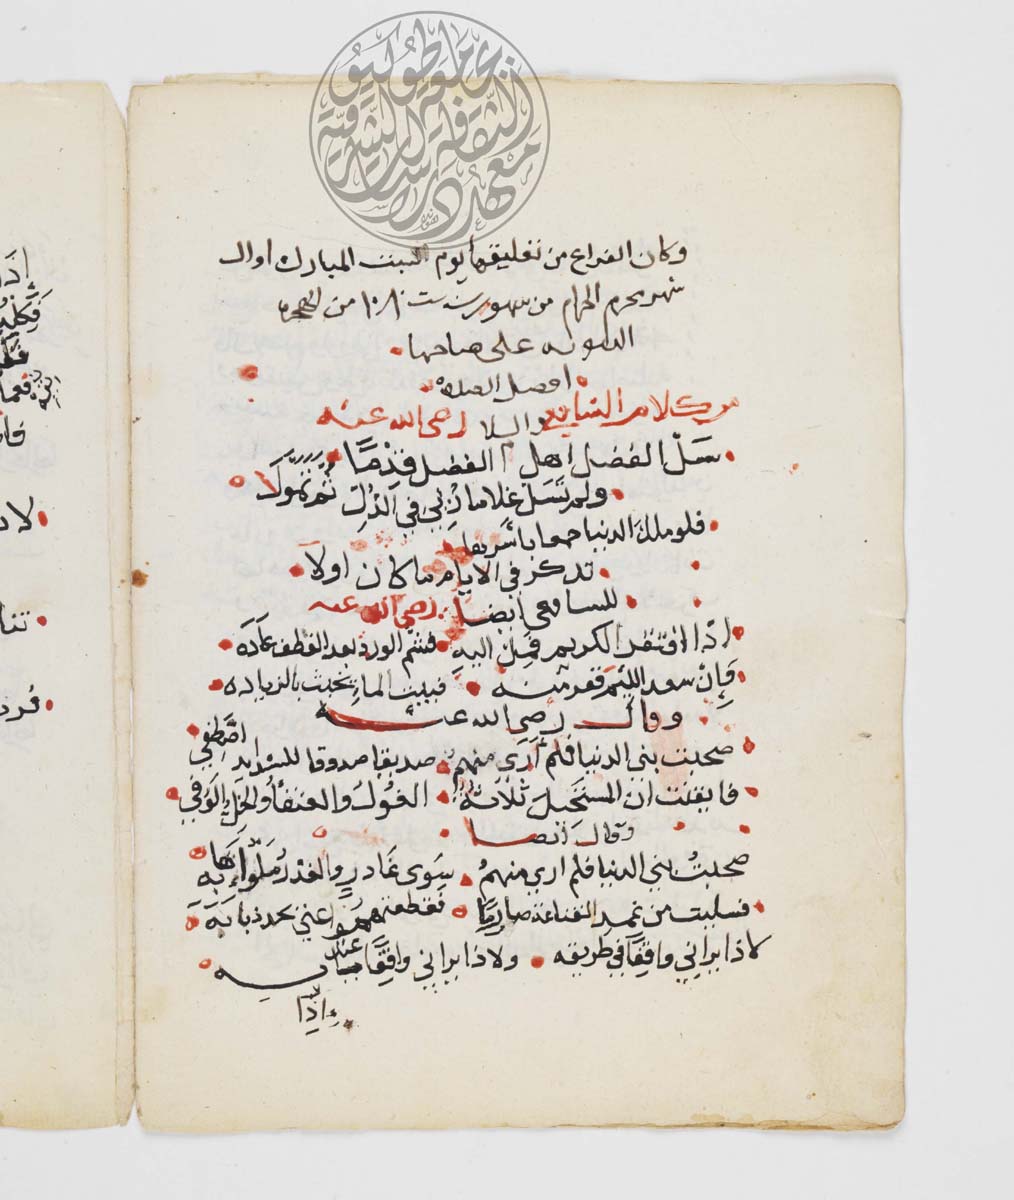 وكان الفراغ من تعليقها يوم السبت المبارك اوال
شهر محرم الحرام من شهور سنة ١٠٨١ من الهجره
النبويه على صاحبها
افضل الصلاة
والسلا
من كلام الشافعي رضي الله عنه
سَل الفضل اهل الفضل قِدْمًا
ولم تسَل غلاما رُبي في الذل ثم تمولا
فلو ملك الدنيا جميعا باسرها
تذكر في الايام ما كان اولا
للشافعي ايضا رضي الله عنه
اذا افتقد الكريم فمِل اليه فشم الورد بعد القطف عاده
وَإِنْ سعد اللئيم ففر منه فبيت الماء يخبث بالزياده
وقال رضي الله عنه
صحبت بني الدنيا فلم أرى منهم صديقا صدوقا للشدايد اصطفي
فايقنت ان المستحيل ثلاثة الغول والعنقا والخل الوفي
وقال ايضا
صحبتُ بني الدنيا فلم ارى منهمُ سوى غادرٍ والغدر ملؤ اهابه
فسليت من غمد القناعة صارمًا فقطعتهموا عني بحد ذبابه
لا ذا يراني واقفًا في طريقه ولا ذا يراني واقفًا عند بابه
واذا
معهد دراسات الثقافة الشرقية
جامعة طوكيو
إذا
لا
تنا